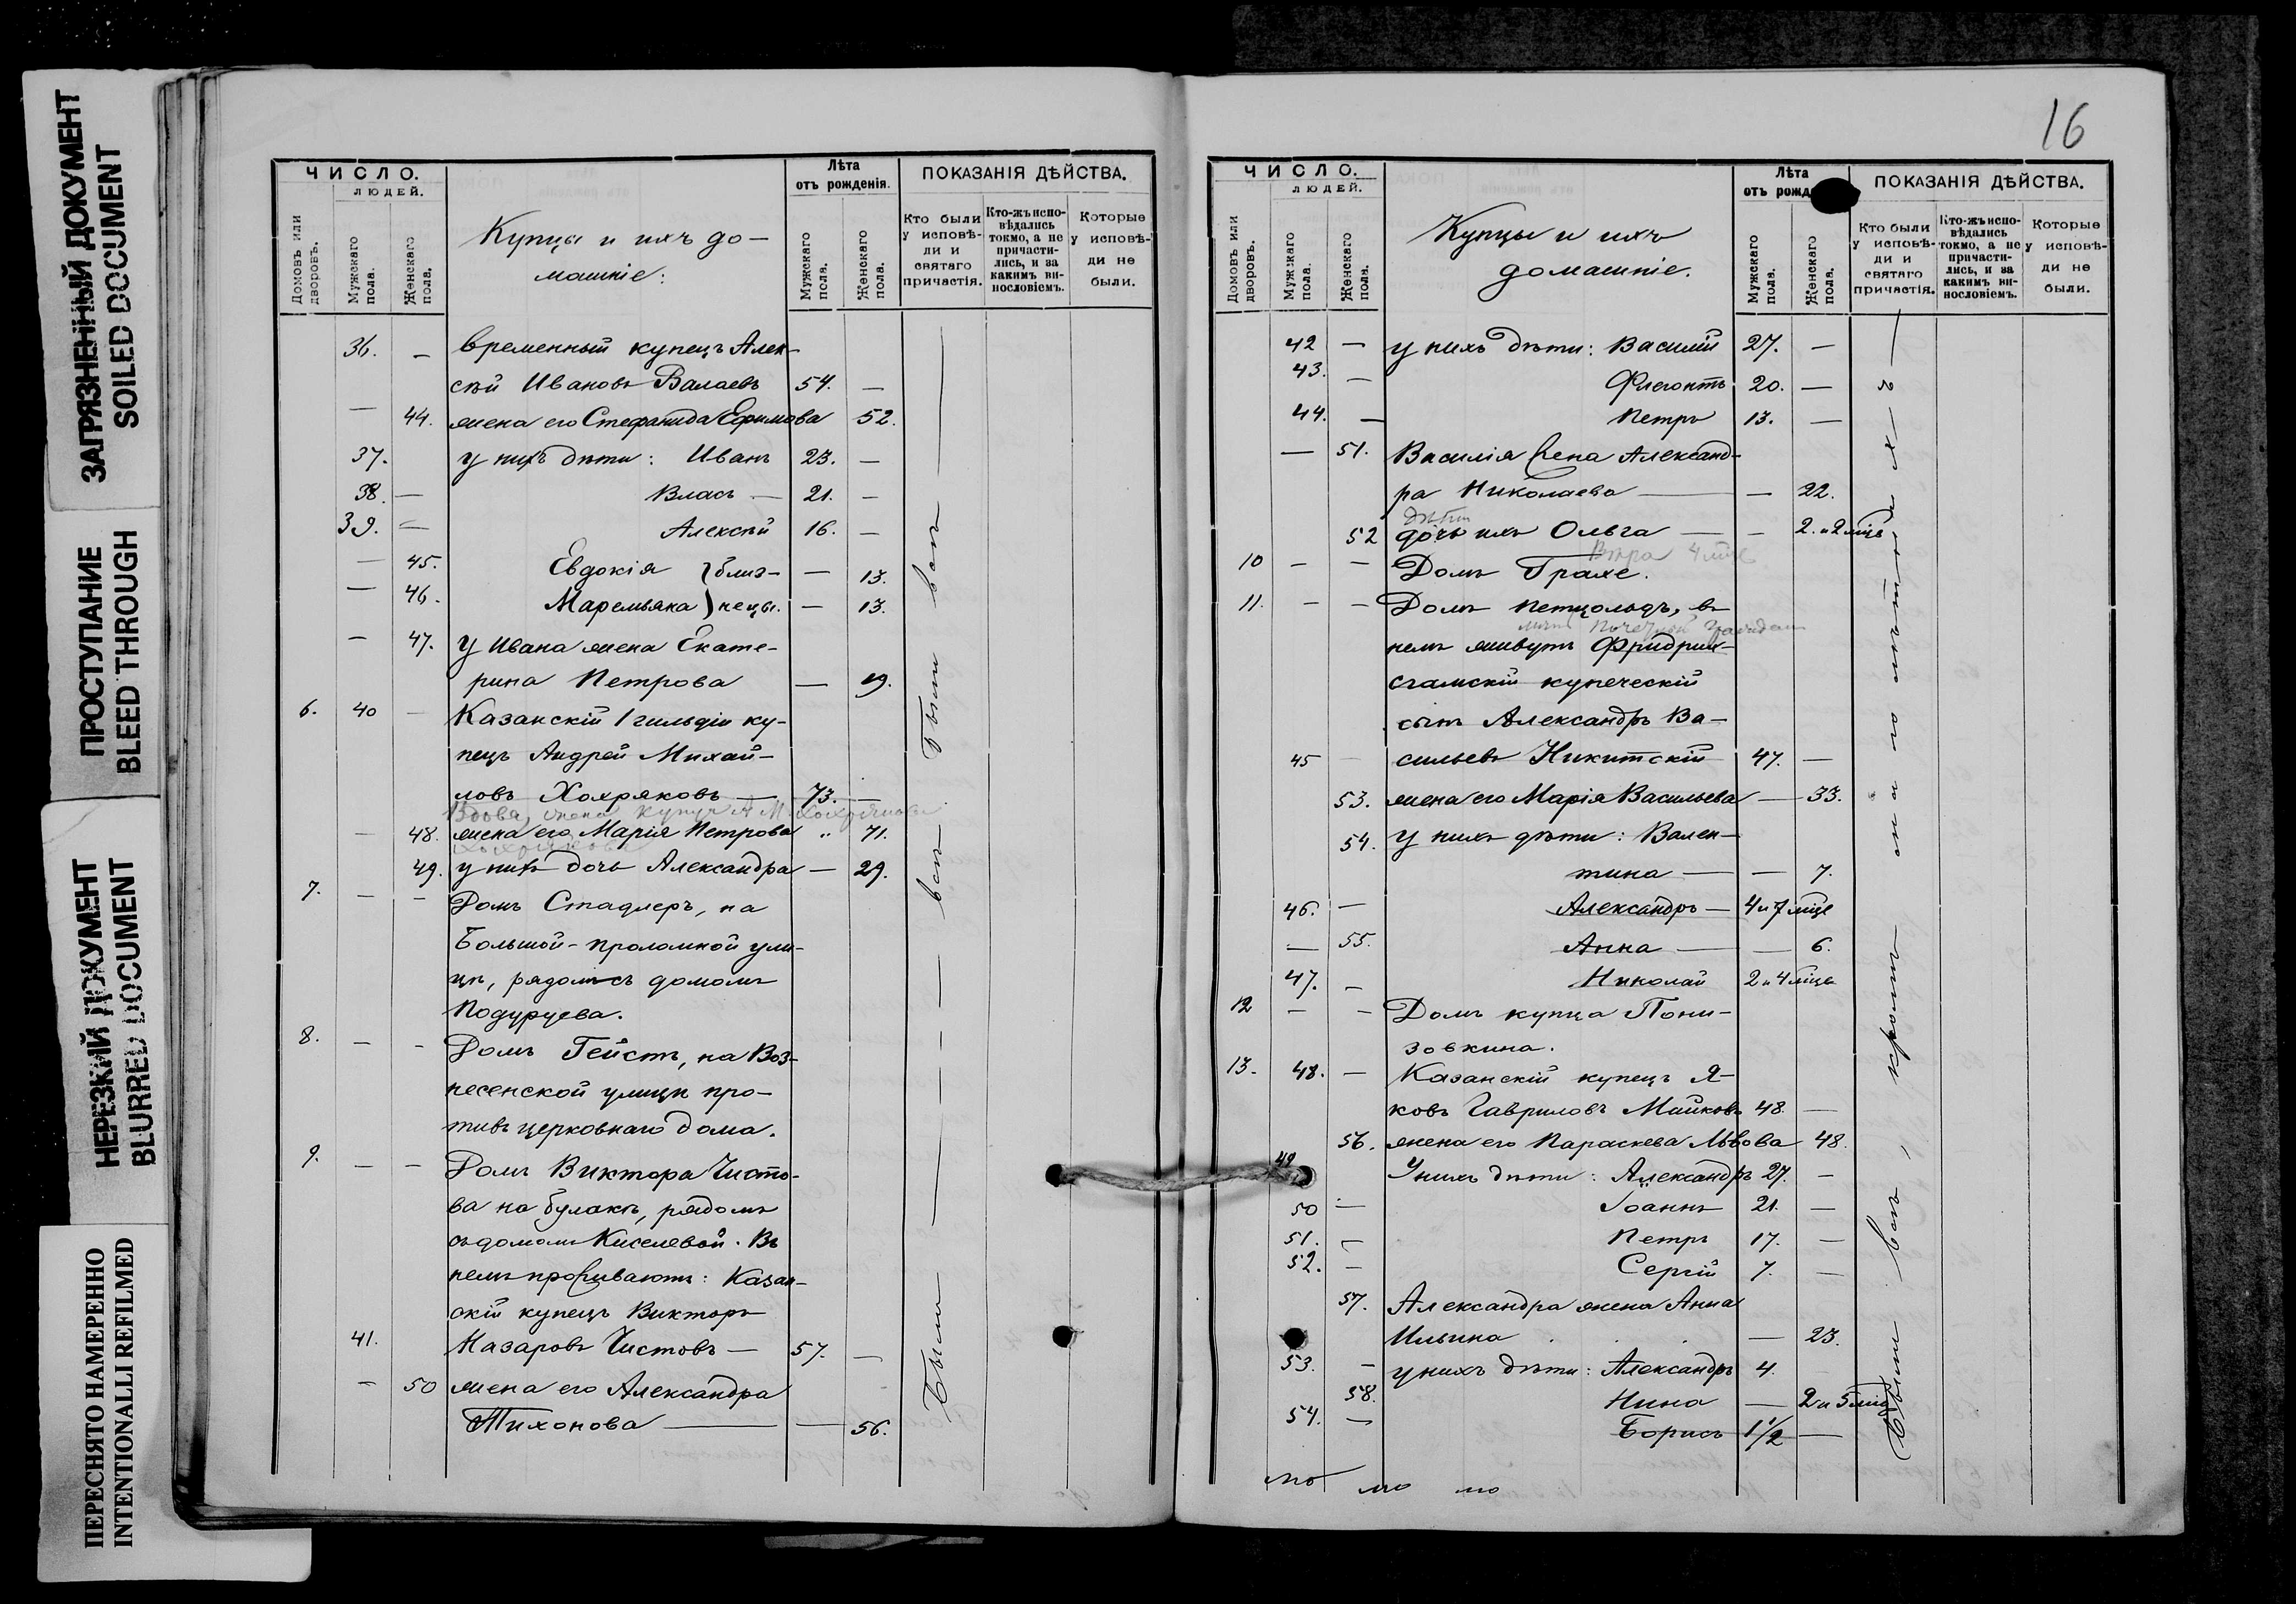 ЗАГРЯЗНЕННЫЙ ДОКУМЕНТ
SOILED DOCUMENT
ПРОСТУПАНИЕ
BLEED THROUGH
НЕРЕЗКИЙ ДОКУМЕНТ
BLURRED DOCUMENT
ПЕРЕСНЯТО НАМЕРЕННО
INTENTIONALLI REFILMED
ЧИСЛО.
ЛЮДЕЙ.
Домовъ или дворовъ.
Мужскаго пола.
Женскаго пола.
Купцы и ихъ до-
машніе:
Лѣта
отъ рожденія.
Мужскаго пола.
Женскаго пола.
ПОКАЗАНІЯ ДѢЙСТВА.
Кто были у исповѣ-ди и святаго причастія.
Кто-жъ испо-вѣдались токмо, а не причасти-лись, и за какимъ ви-нословіемъ.
Которые у исповѣ-ди не были.
36. — временный купецъ Алек-
сѣй Ивановъ Валаевъ 54. —
— 44. жена его Стефанида Ефимова 52.
37. у нихъ дѣти: Иванъ 23. —
38. — Власъ — 21. —
39. — Алексѣй 16. —
— 45. Евдокія } близ- — 13.
— 46. Маремьяна } нецы. — 13.
— 47. У Ивана жена Екате-
рина Петрова — 19.
6. 40 — Казанскій 1 гильдіи ку-
пецъ Андрей Михай-
ловъ Хохряковъ — 73. —
Вдова, жена купца А М Хохрякова
— 48. жена его Марія Петрова „ 71.
Хохрякова
49. у нихъ дочь Александра — 29.
7. — — Домъ Стадлеръ, на
Большой-проломной ули-
цѣ, рядомъ съ домомъ
Подуруева.
8. — — Домъ Гейстъ, на Воз-
несенской улицѣ про-
тивъ церковнаго дома.
9. — — Домъ Виктора Чисто-
ва на булакѣ, рядомъ
съ домомъ Киселевой. Въ
немъ проживаютъ: Казан-
скій купецъ Викторъ
41. Назаровъ Чистовъ — 57. —
— 50 жена его Александра
Тихонова — — 56.
Были — всѣ — Были всѣ
16
ЧИСЛО.
ЛЮДЕЙ.
Домовъ или дворовъ.
Мужскаго пола.
Женскаго пола.
Купцы и ихъ
домашніе.
Лѣта
отъ рожд
Мужскаго пола.
Женскаго пола.
ПОКАЗАНІЯ ДѢЙСТВА.
Кто были у исповѣ-ди и святаго причастія.
Кто-жъ испо-вѣдались токмо, а не причасти-лись, и за какимъ ви-нословіемъ.
Которые у исповѣ-ди не были.
42 — у нихъ дѣти: Василій 27. —
43. — Флегонтъ 20. —
44. — Петръ 13. —
— 51. Василія жена Александ-
ра Николаева — — 22.
дѣти
52 дочь ихъ Ольга — — 2. и 2 мѣс
Вѣра 4 мѣс
10 — — Домъ Грахе.
11. — — Домъ Петцольдъ, въ
личн Почетной Граждан
немъ живутъ Фридрих-
сгамскій купеческій
сынъ Александръ Ва-
45 — сильевъ Никитскій 47. —
53. жена его Марія Васильева — 33.
54. У нихъ дѣти: Вален-
тина — — 7.
46. — Александръ — 4 и 7 мѣс
— 55. Анна — — 6.
47. — Николай 2 и 4 мѣс
12 — — Домъ купца Пони-
зовкина.
13. 48. — Казанскій купецъ Я-
ковъ Гавриловъ Майковъ 48. —
56. жена его Параскева Львова 48.
49 У нихъ дѣти: Александръ 27. —
50 — Іоаннъ 21. —
51. — Петръ 17. —
52. — Сергій 7. —
57. Александра жена Анна
Ильина — 23.
53. — у нихъ дѣти: Александръ 4.
58. Нина — 2 и 5 мѣс
54. — Борисъ 1 1/2 —
Были всѣ, кромѣ